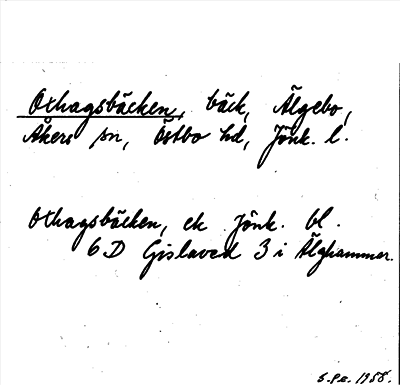 Oxhagsbäcken, bäck, Älgebo,
Åkers sn, Östbo hd, Jönk. l.
Oxhagsbäcken, ek Jönk. bl.
6D Gislaved 3 i Älghammar.
S.Pe. 1958.